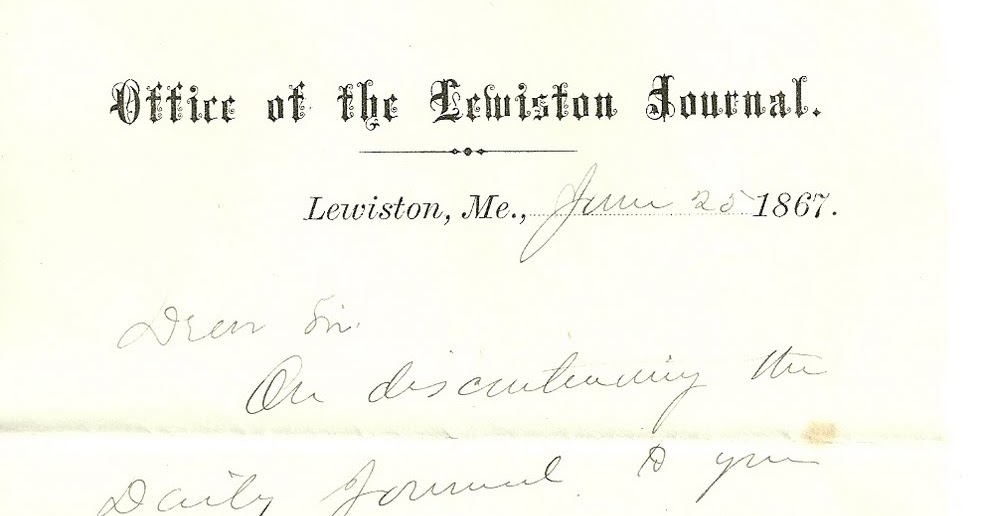 Office of the Lewiston Journal.
Lewiston, Me., June 25 1867.
Dear Sir.
On discontinuing the
Daily Journal to you